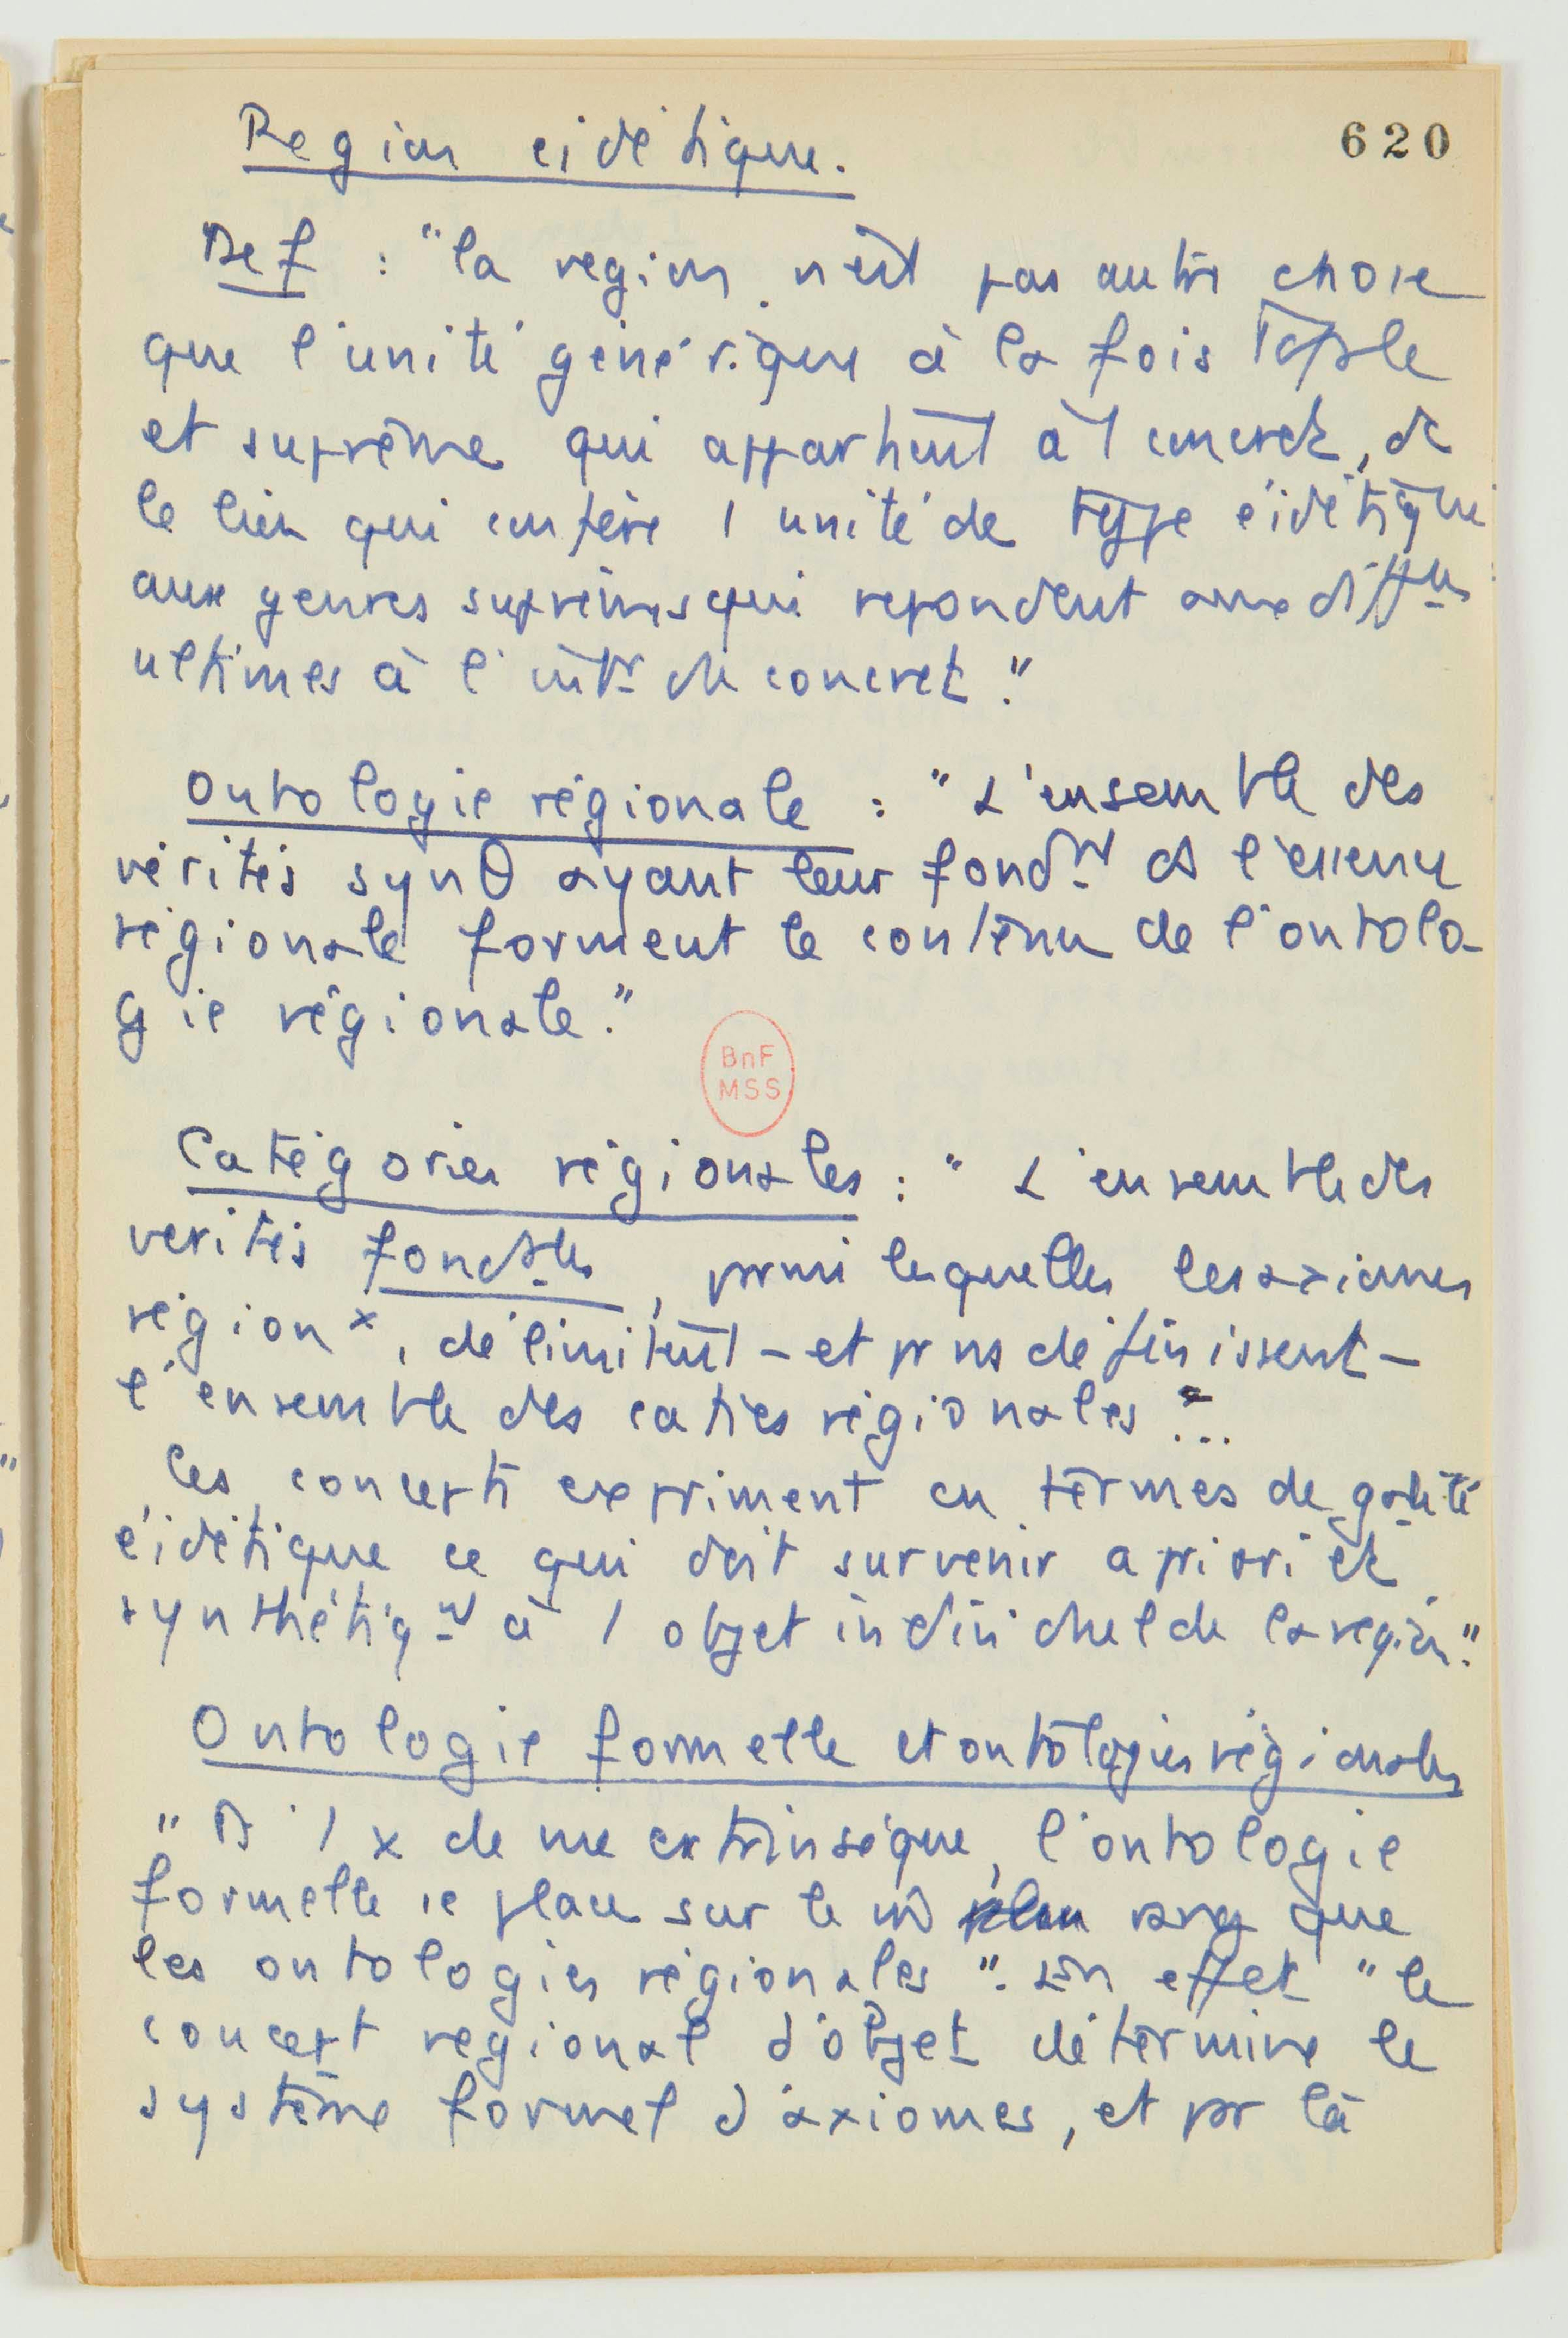 620
Region eidétique.
Def : "la region n'est pas autre chose
que l'unité générique à la fois totale
et suprême qui appartient à 1 concret, de
le lien qui confère 1 unité de type éidétique
aux genres suprêmes qui repondent aux diff
ultimes à l'intr du concret."
Ontologie régionale : "L'ensemble des
vérités synθ ayant leur fondt ds l'essence
régionale forment le contenu de l'ontolo-
gie régionale."
BnF
MSS
Catégories régionales : "L'ensemble des
verités fondales, parmi lesquelles les axiomes
régionx, délimitent – et pr ns définissent –
l'ensemble des caties régionales "...
Ces concepts expriment en termes de galité
éidétique ce qui doit survenir a priori et
synthétiqt à 1 objet individuel de la région."
Ontologie formelle et ontologies régionales
" D'1 x de vue extrinsèque, l'ontologie
formelle se place sur le m̂ plan rang que
les ontologies régionales ". En effet " le
concept regional d'objet détermine le
système formel d'axiomes, et par là